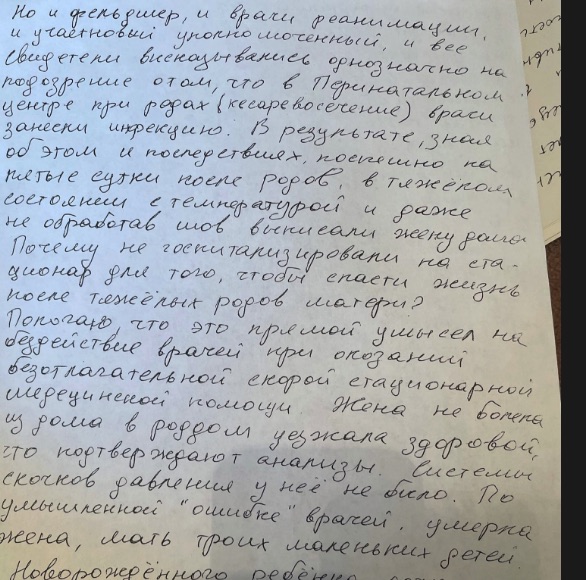 Но и фельдшер, и врачи реанимации,
и участковый уполномоченный, и все
свидетели высказывались однозначно на
подозрение о том, что в Перинатальном
центре при родах (кесаревосечение) врачи
занесли инфекцию. В результате, зная
об этом и последствиях, поспешно на
пятые сутки после родов, в тяжёлом
состоянии с температурой и даже
не обработав шов выписали жену домой
Почему не госпитализировали на ста-
ционар для того, чтобы спасти жизнь
после тяжёлых родов матери?
Полагаю, что это прямой умысел на
бездействие врачей при оказании
безотлагательной скорой стационарной
медецинской помощи. Жена не болела
из дома в роддом уезжала здоровой,
что подтверждают анализы. Системы
скочков давления у неё не было. По
умышленной "ошибке" врачей, умерла
жена, мать троих маленьких детей.
Новорождённого ребёнка